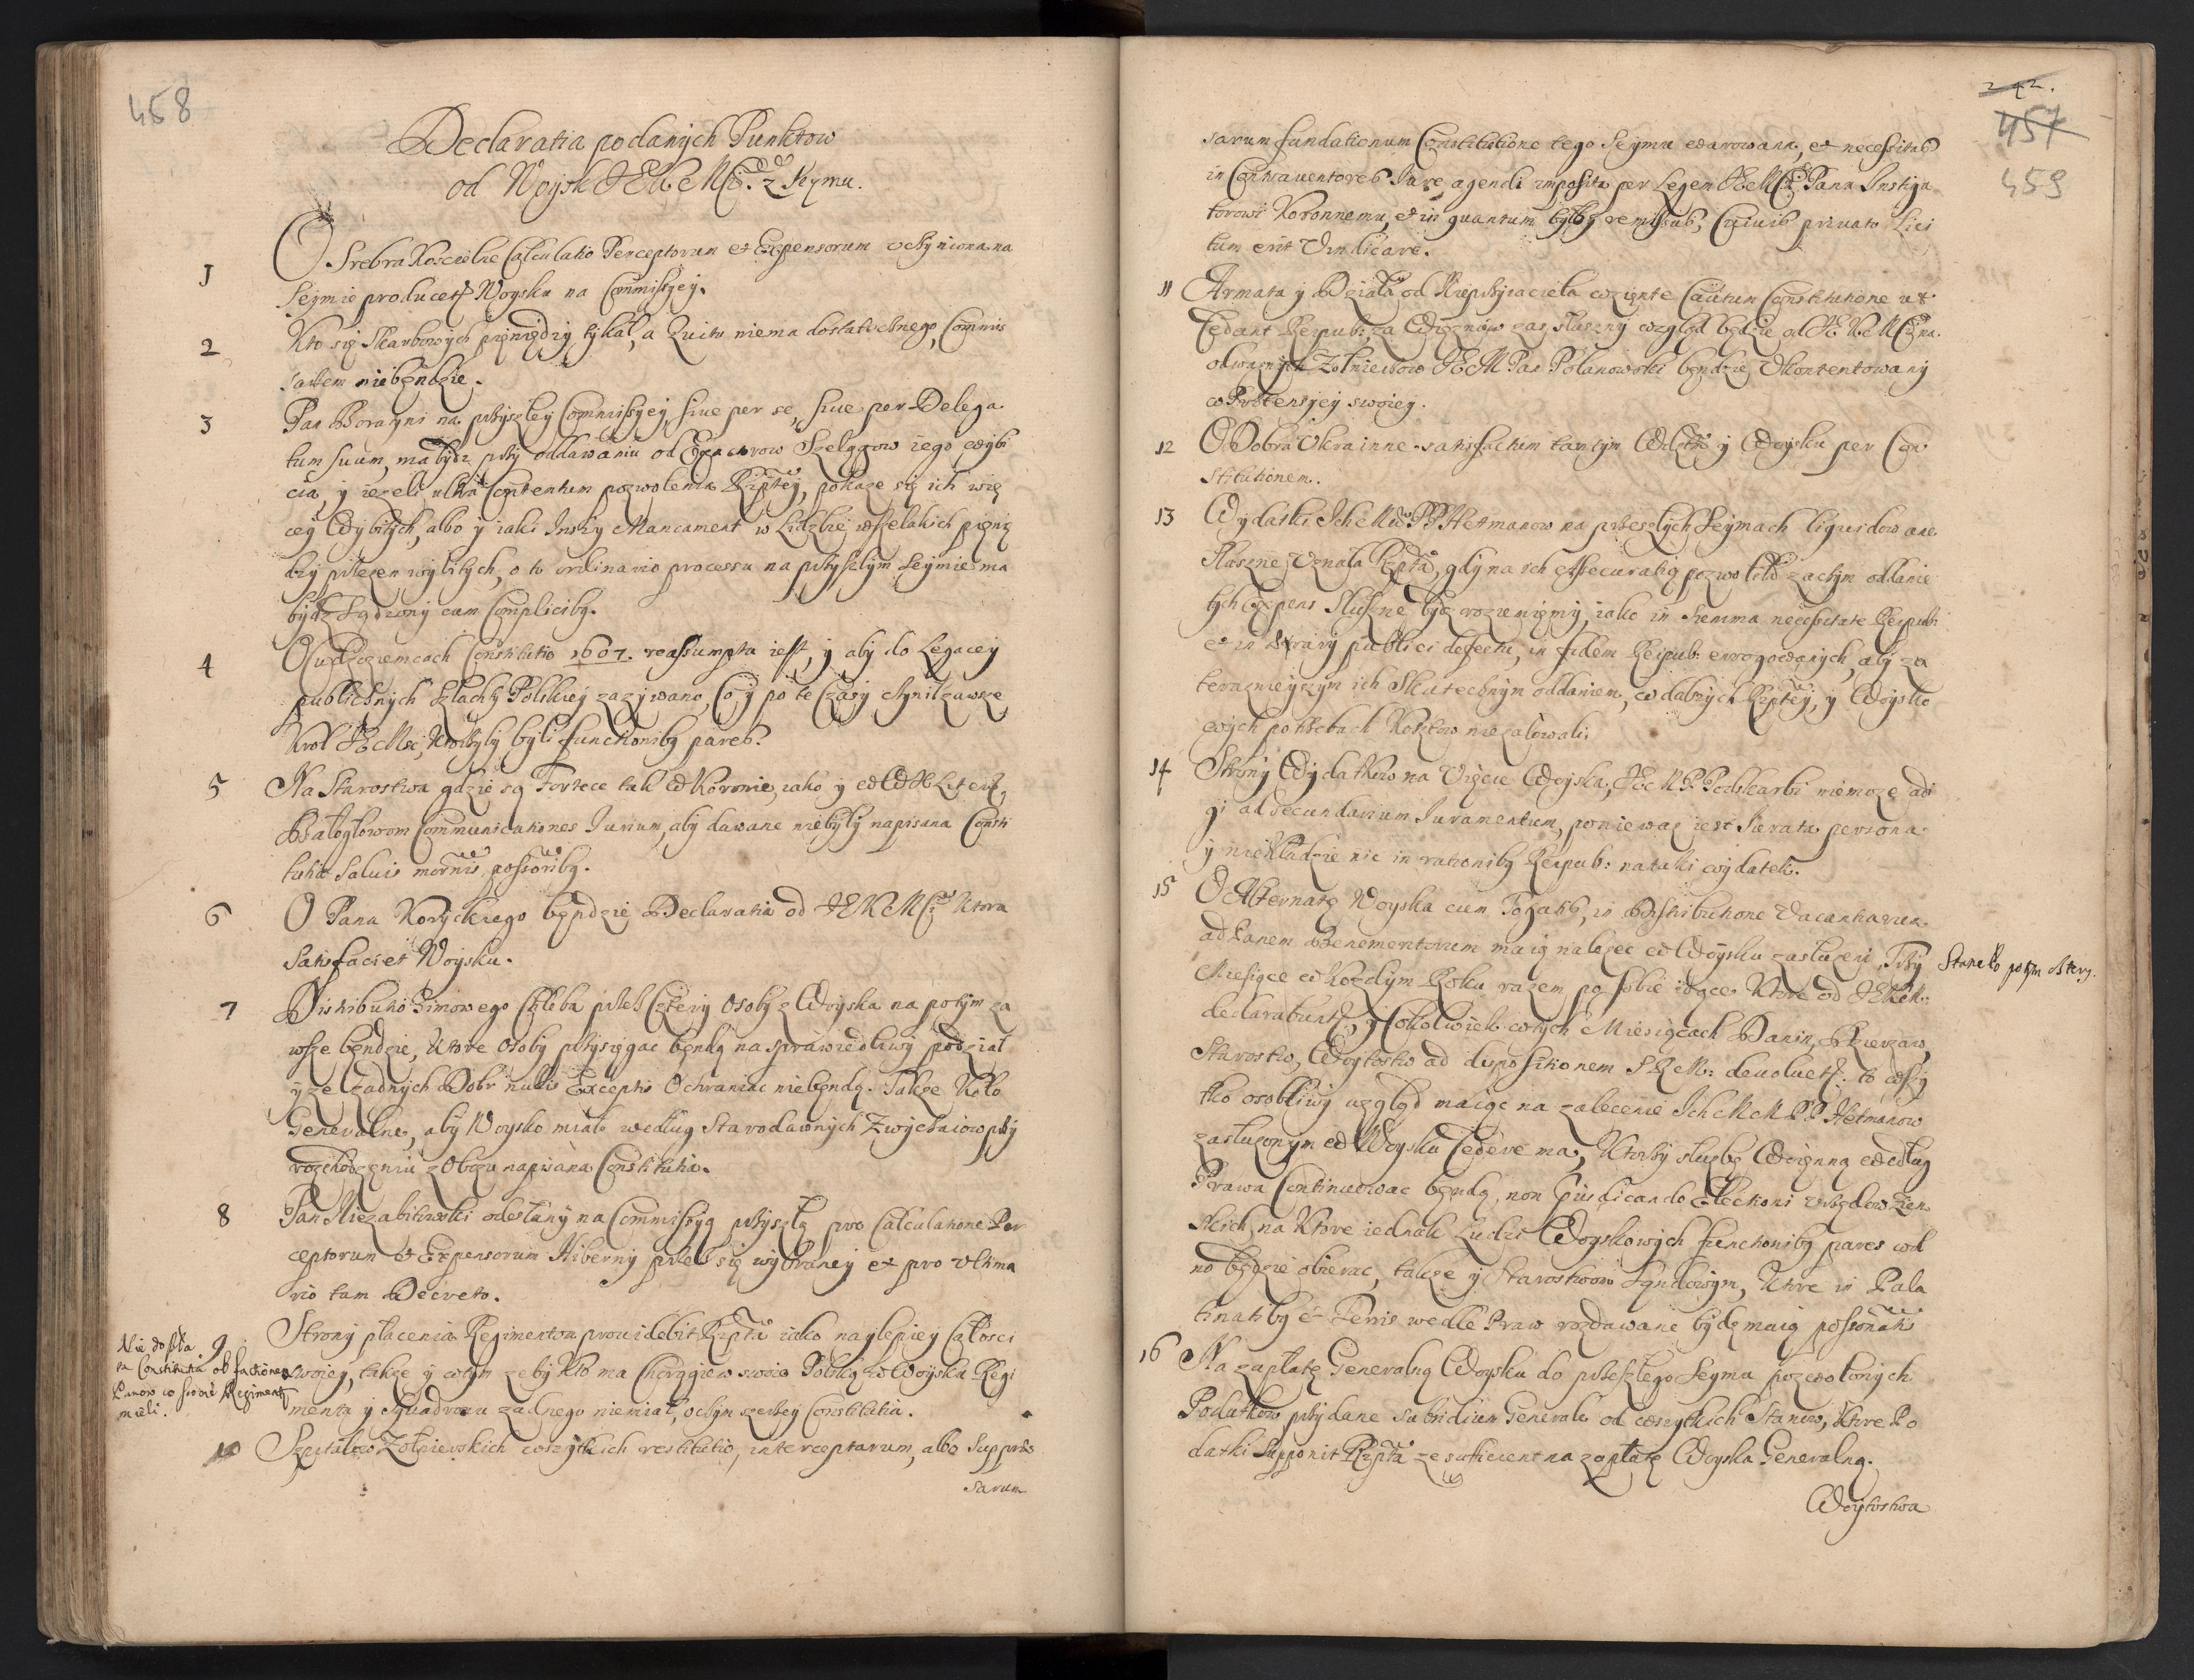 458
Declaratia podanych Punktow
od Woysk JEKeMći z Seymu.
1 O Srebra Koscielne Calculatio Perceptorum et Expensorum uczyniona na
Seymie producetr Woysku na Commissyey.
2 Kto się Skarbowych pieniędzy tykał, a Quitu niema dostatecznego, Commis
sarzem niebędzie.
3 Pan Boratyni na przyszley Commissyey, siue per se, siue per Delega
tum suum, ma bydz przy oddawaniu od Exactorow Szelągow iego wybi
cia, y iezeli ultra Contentum pozwolenia Rzptey, pokaze się ich wię
cey Wybitych, albo y iaki Inszy Mancament w Liczbie wszelakich pienię
dzy przezen wybitych, o to ordinario processu na przyszłym Seymie ma
bydz Sądzony cum Complicibq.
4 O Cudzoziemcach Constitutio 1607. reassumpta iest, y aby do Legacey
publicznych Szlachty Polskiey zazywano, Co y po te Czasy czynił zawsze
Krol JEMsc, Ktorzyby byli functionibq pares.
5 Na Starostwa gdzie są Fortece tak w Koronie, iako y w WXLitew,
Białogłowom Communicationes Iurium, aby dawane niebyły napisana Consti
tutia saluis modernis possoribq.
6 O Pana Koryckiego bęndzie Declaratia od JEKeMći Ktora
Satisfaciet Woysku.
7 Distributio Zimowego Chleba przez Cztery Osoby z Woyska na potym za
wsze bęndzie, Ktore Osoby przysięgac będą na sprawiedliwy podział
y ze zadnych Dobr nullis Exceptis Ochraniac niebęndą. Takze Koło
Generalne, aby Woysko miało według Starodawnych Zwyczaiow przy
rozchodzęniu z Obozu napisana Constitutia.
8 Pan Niezabitowski odesłany na Commissyą przyszłą pro Calculatione Per
ceptorum et Expensorum Hiberny przez się wybraney et pro ultima
rio tam Decreto.
9 Strony płacenia Regimentow prouidebit Rzpta iako naylepiey Całosci
swoiey, takze y wtym zeby kto ma Chorągiew swoię Polską w Woysku Regi
menta y Squadronu zadnego niemiał, oczym szerzey Constitutia.
Nie doszła
ta Constitutia ob factionem
Panow co swoie Regimenty
mieli.
10 Szpitalow Zołnierskich wszytkich restitutio, interceptarum, albo Suppres
sarum
242.
457
459
sarum fundationum Constitutione tego Seymu warowana, et necessitas
in Contrauentores Iure agendi imposita per Legem JEMći Panu Instiga
torowi Koronnemu, et in quantum byłby remissus, Cuiuis priuato Lici
tum erit Vindicare.
11 Armata y Działa od Nieprzyiaciela wzięte Cautum Constitutione ut
Cedant Reipub: za Więzniow zas słuszny wzgląd będzie od JEKeMći na
odwaznych Zołnierzow JEM Pan Polanowski będzie Vkontentowany
w Prætensyey swoiey.
12 O Dobra Vkrainne satisfactum tamtym Woiewztw y Woysku per Con
stitutionem.
13 Wydatki IchMćiow PP Hetmanow na przeszłych Seymach liquidowane
Słuszne Vznała Rzpta, gdy na ich Assecuratią pozwoliła zaczym oddanie
tych Expens Słuszne byc rozumięmy, iako in summa necessitate Reipub:
et in Ærarij publici defectu, in fidem Reipub: erogowanych, aby za
teraznieyszym ich Skutecznym oddaniem, w dalszych Rzptey, y Woysko
wych potrzebach Kosztow niezałowali.
14 Strony Wydatkow na Vięcie Woyska, JEMP Podskarbi niemoze adi
gi ad secundarium Iuramentum, poniewaz iest Iurata persona
y niekładzie nic in rationibq Reipub: na taki wydatek.
15 O Alternatę Woyska cum Togatis, in Distributione Vacantiarum
ad Panem Benemeritorum maią nalezec w Woysku zasłuzeni Trzy
Stanęło potym cztery.
Miesiące w Kozdym Roku razem po sobie idące Ktore od JEKeM:
declarabuntr, y Cokolwiek wtych Miesiącach Danin, Dzierzaw,
Starostw, Woytostw ad dispositionem SReM: deuoluetr to wszy
tko osobliwy wzgląd maiąc na zalecenie IcheMM PP Hetmanow
zasłuzonym w Woysku Cedere ma, Ktorzy słuzbę Woienną według
Prawa Continuowac będą, non præiudicando Electioni Vrzędow Ziem
skich, na Ktore iednak Ludzi Woyskowych functionibq pares wol
no będzie obierac, takze y Starostwom Sądowym, Ktore in Pala
tinatibq et Terris wedle Praw rozdawane bydz maią possonatis
16 Na zapłatę Generalną Woysku do przeszłego Seymu pozwolonych
Podatkow przydane subsidium Generale od wszytkich Stanow, Ktore Po
datki Supponit Rzpta ze sufficient na zapłatę Woyska Generalną.
Woytostwa